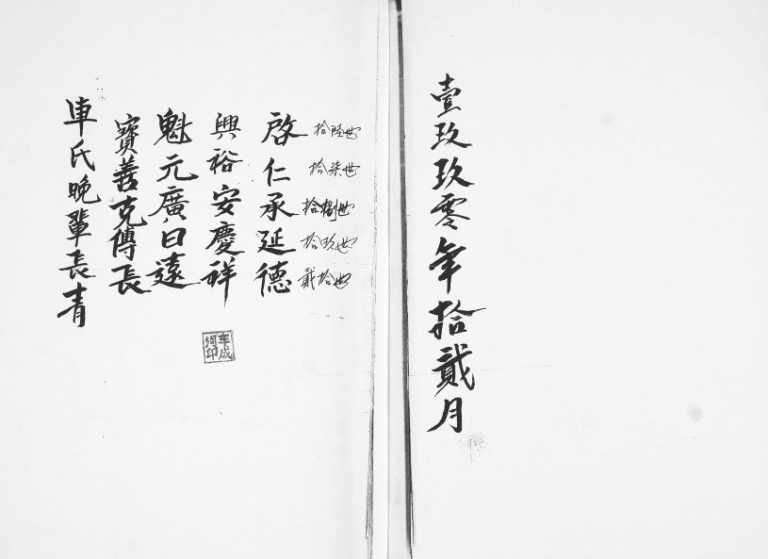 壹玖玖零年拾貳月
拾陸世
拾柒世
拾捌世
拾玖世
貳拾世
啓仁承延德
興裕安慶祥
魁元廣日遠
寶善克傳長
車氏晚輩長青
車成河印